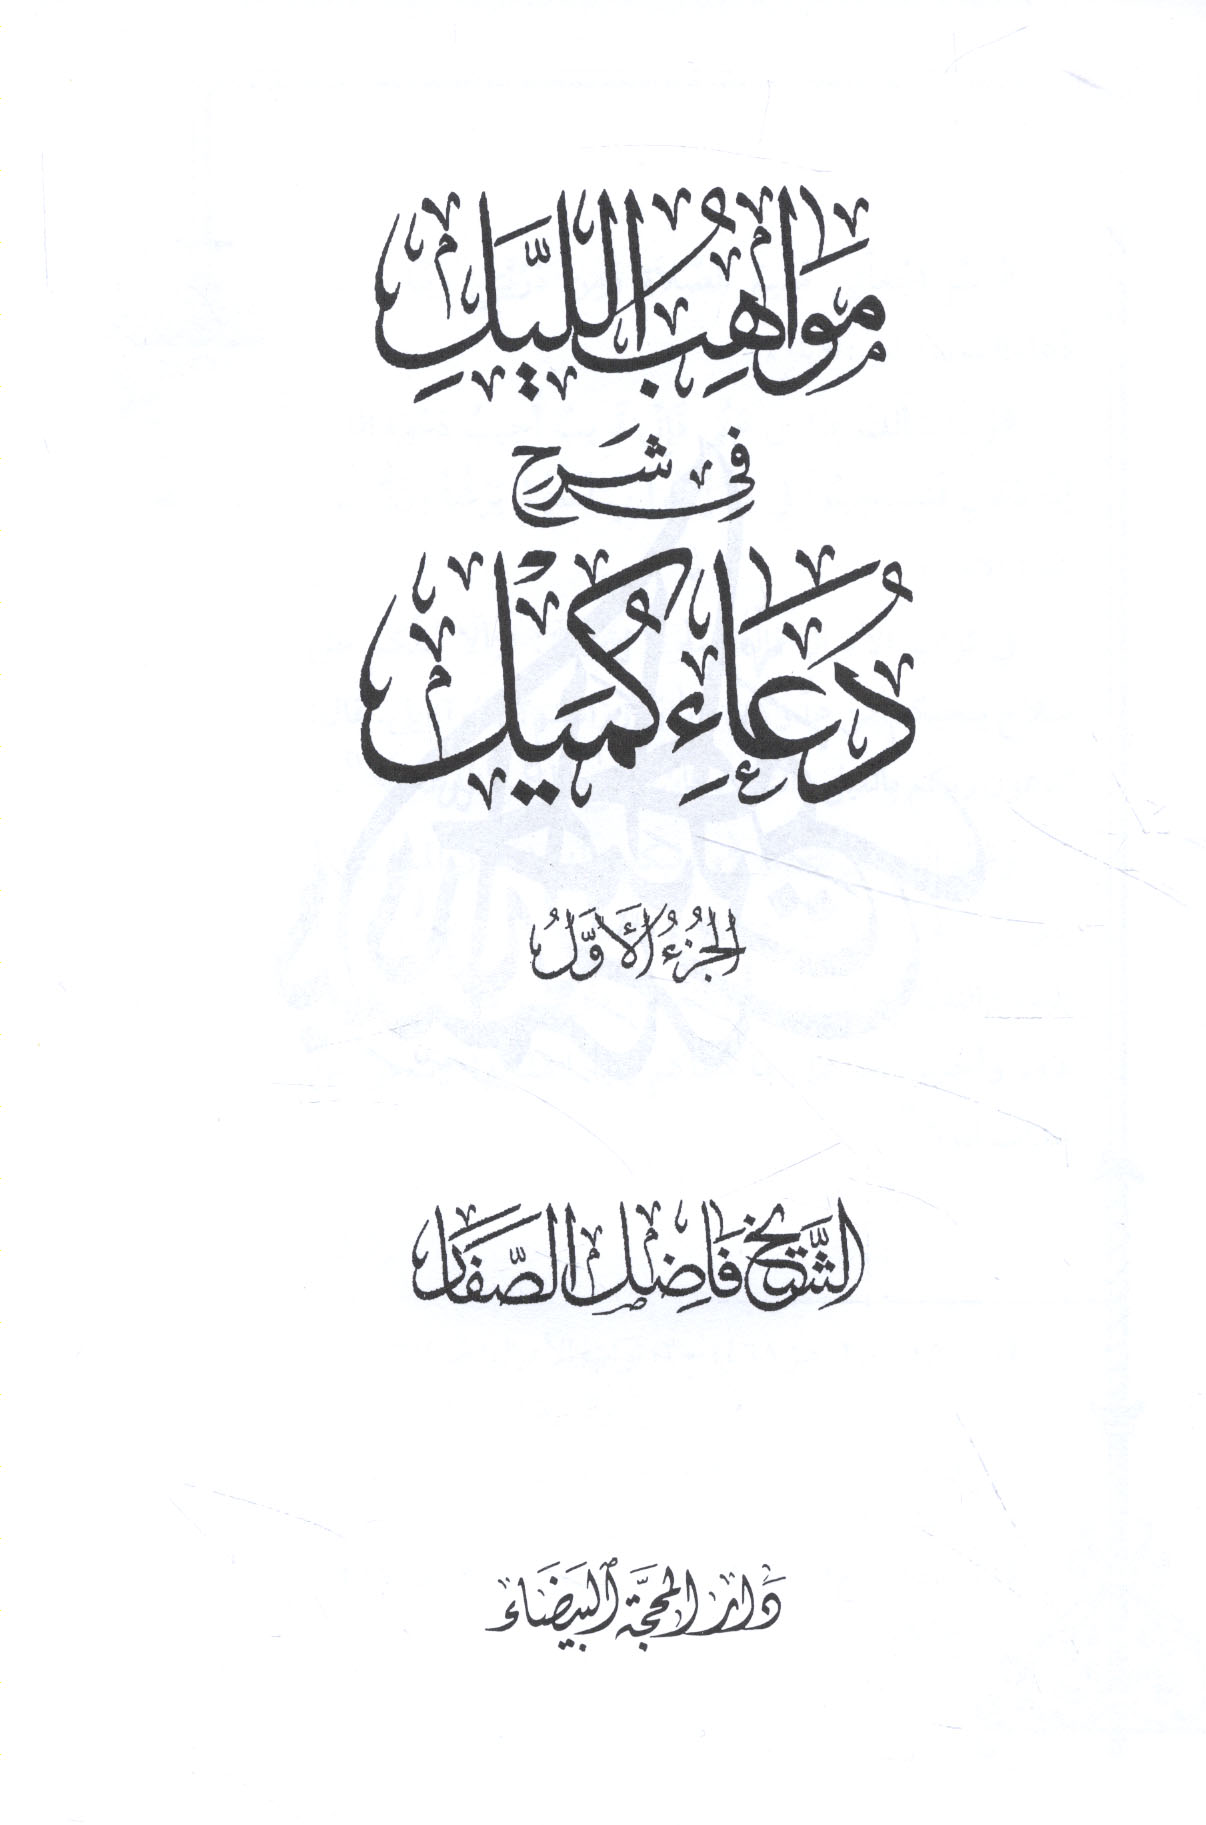 مَوَاهِبُ اللَّيْلِ
فِي شَرْحِ
دُعَاءِ كُمَيْل
الجُزْءُ الأَوَّلُ
الشَّيْخ فَاضِل الصَّفَّار
دَار المحَجَّة البَيْضَاء